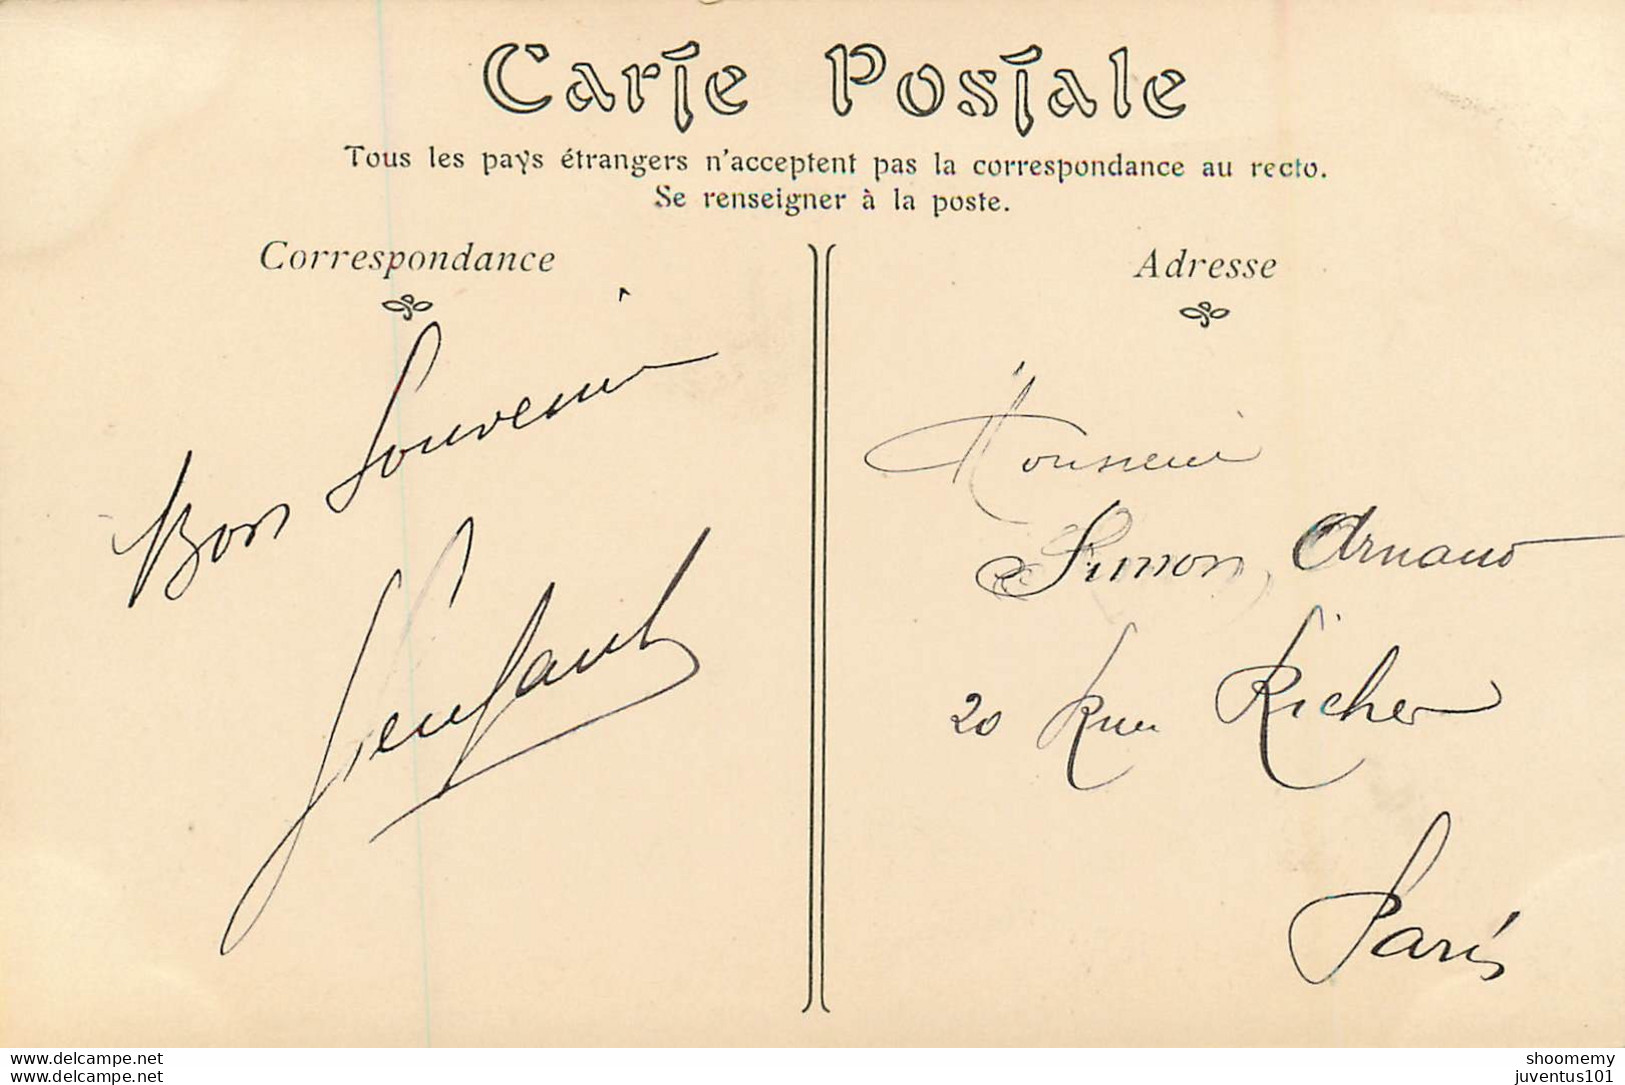 Carte Postale
Tous les pays étrangers n'acceptent pas la correspondance au recto.
Se renseigner à la poste.
Correspondance
Bon Souvenir
Adresse
Monsieur
Simon Arnaud
20 Rue Richer
Paris
www.delcampe.net
www.delcampe.net
shoomemy
juventus101